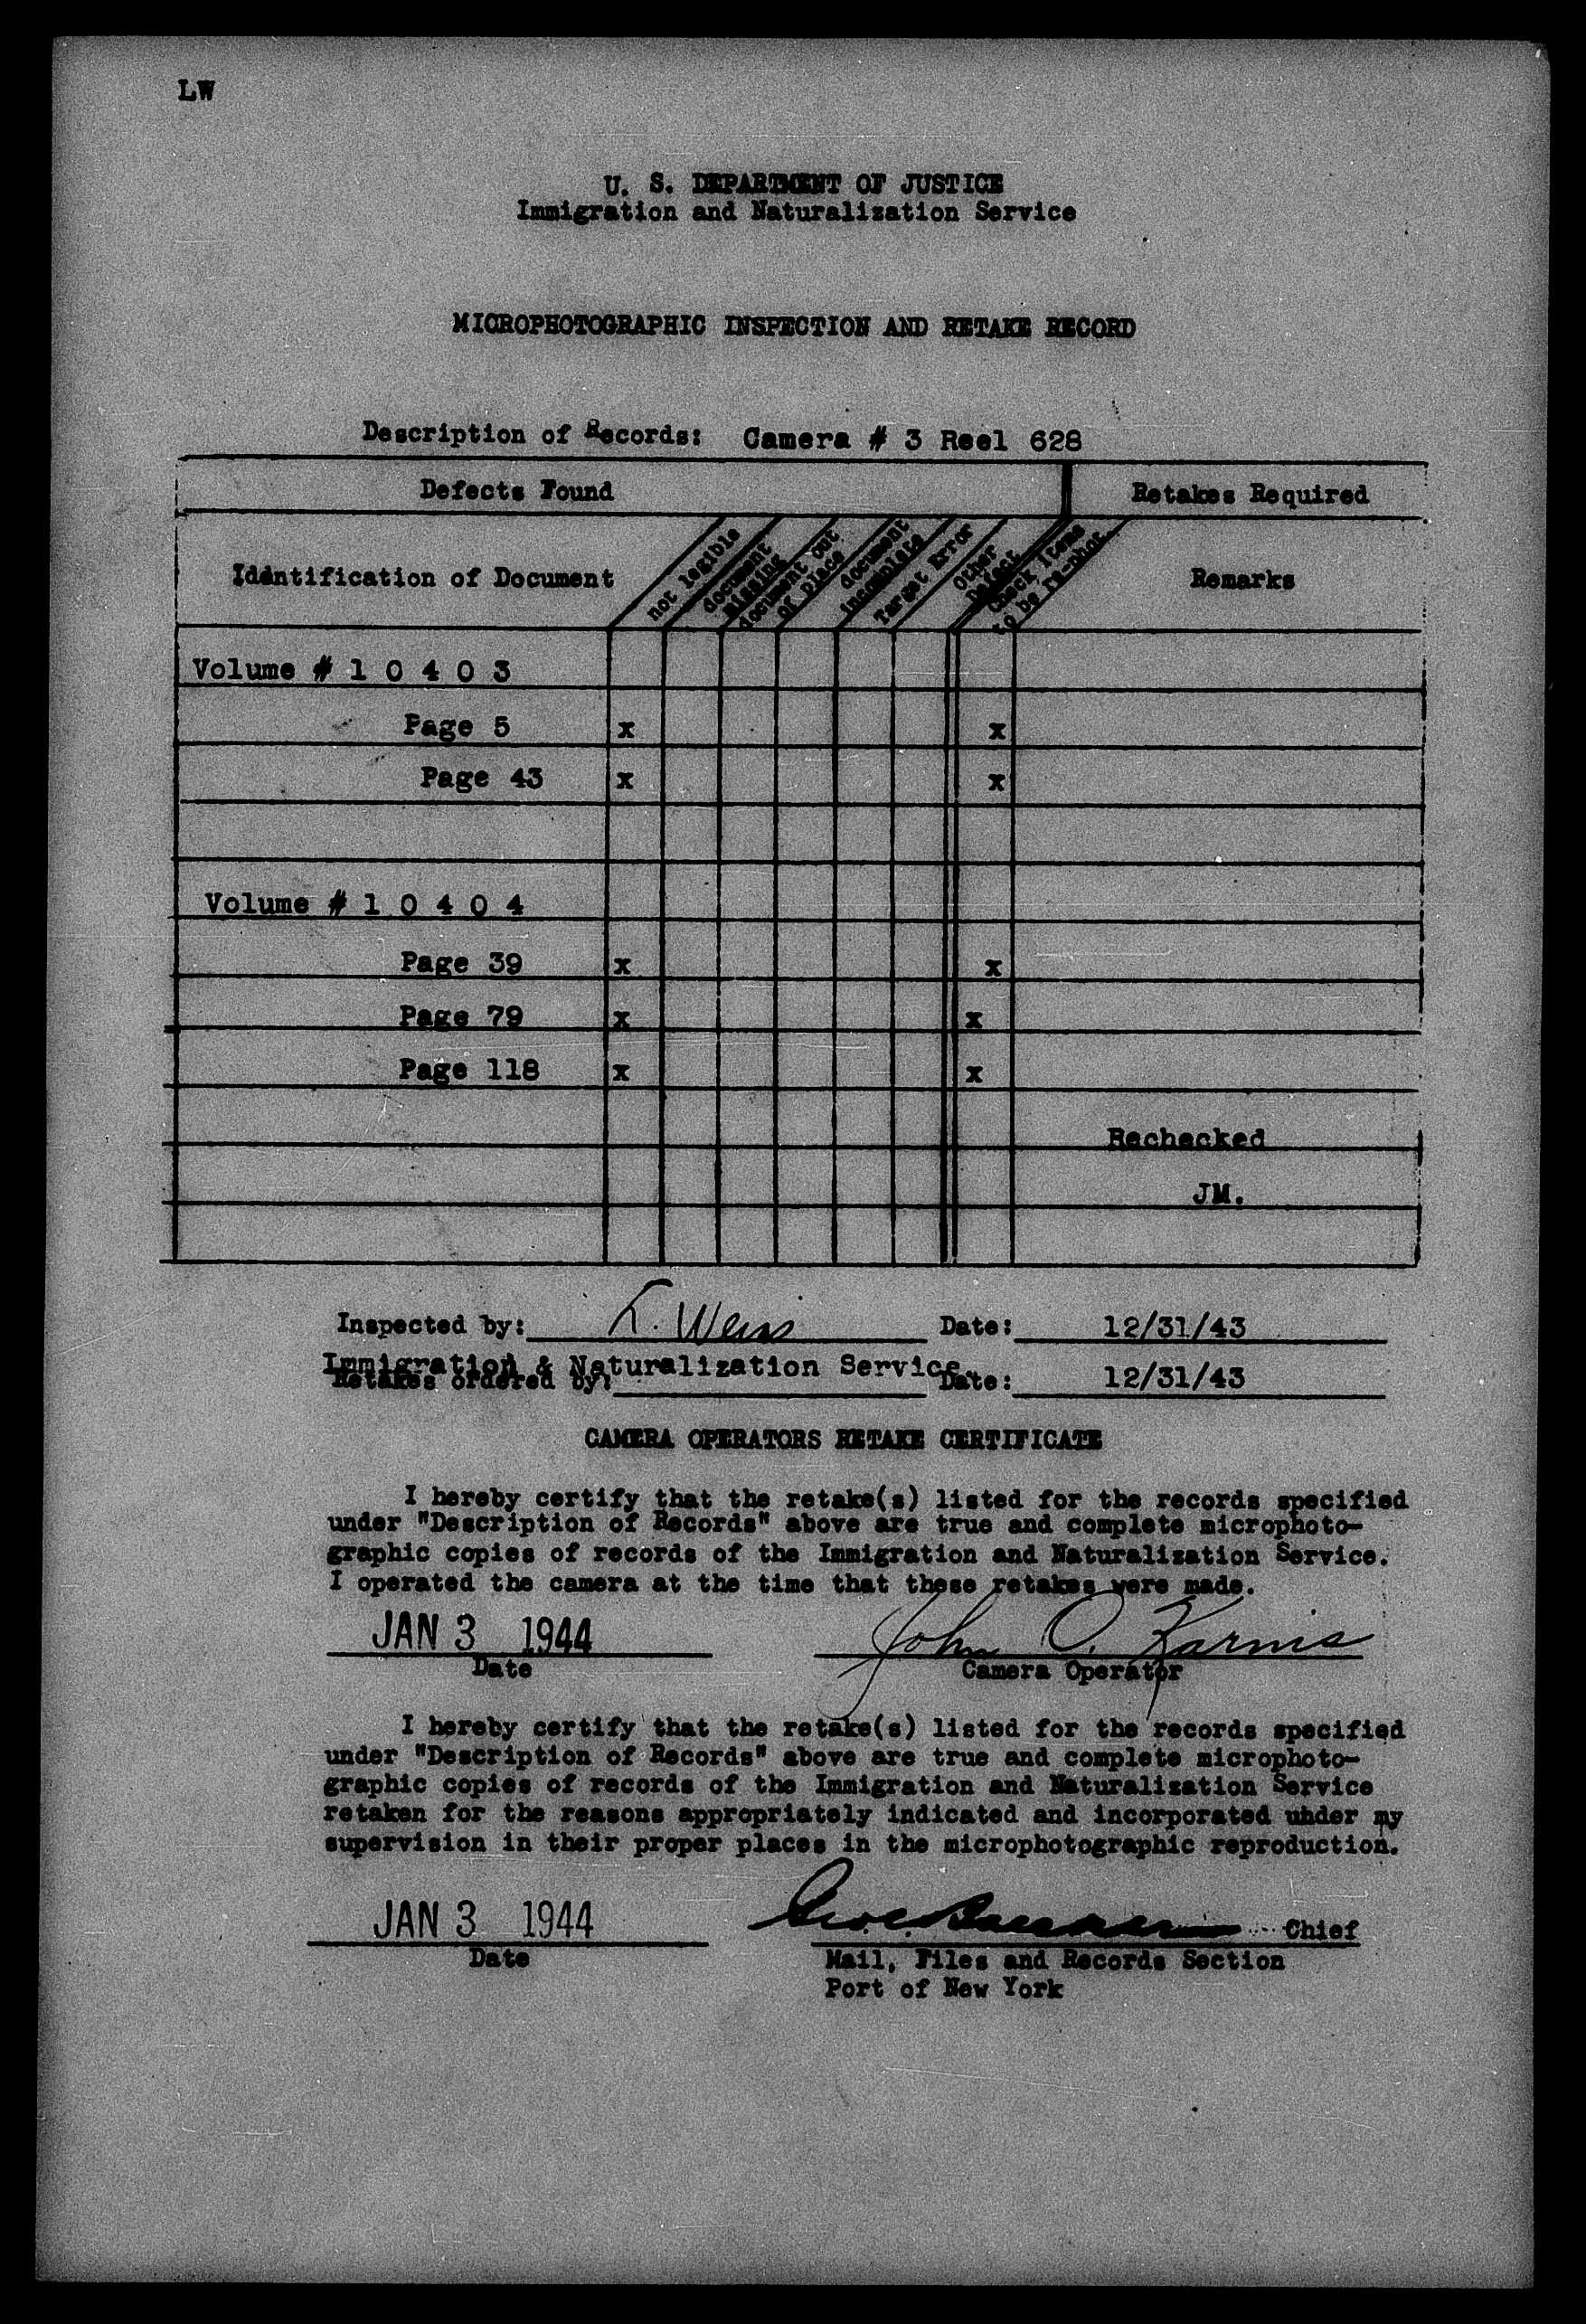 LW
U. S. DEPARTMENT OF JUSTICE
Immigration and Naturalization Service
MICROPHOTOGRAPHIC INSPECTION AND RETAKE RECORD
Description of Records: Camera # 3 Reel 628
Defects Found Retakes Required
Identification of Document
not legible
document missing
document out of place
document incomplete
Target Error
Other Defect
Check Items to be re-phot.
Remarks
Volume # 1 0 4 0 3
Page 5 x x
Page 43 x x
Volume # 1 0 4 0 4
Page 39 x x
Page 79 x x
Page 118 x x
Rechecked
JM.
Inspected by: L. Weiss Date: 12/31/43
Immigration & Naturalization Service.
Retakes ordered by: Date: 12/31/43
CAMERA OPERATORS RETAKE CERTIFICATE
I hereby certify that the retake(s) listed for the records specified
under "Description of Records" above are true and complete microphoto-
graphic copies of records of the Immigration and Naturalization Service.
I operated the camera at the time that these retakes were made.
JAN 3 1944 John O. Karnis
Date Camera Operator
I hereby certify that the retake(s) listed for the records specified
under "Description of Records" above are true and complete microphoto-
graphic copies of records of the Immigration and Naturalization Service
retaken for the reasons appropriately indicated and incorporated uhder my
supervision in their proper places in the microphotographic reproduction.
JAN 3 1944 Chief
Date Mail, Files and Records Section
Port of New York